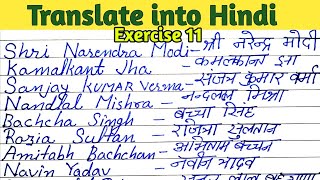 Translate into Hindi
Exercise 11
Shri Narendra Modi - श्री नरेन्द्र मोदी
Kamalkant Jha - कमलकान्त झा
Sanjay KUMAR Verma - संजय कुमार वर्मा
Nandlal Mishra - नन्दलाल मिश्रा
Bachcha Singh - बच्चा सिंह
Rozia Sultan - रज़िया सुल्तान
Amitabh Bachchan - अमिताभ बच्चन
Navin Yadav - नवीन यादव